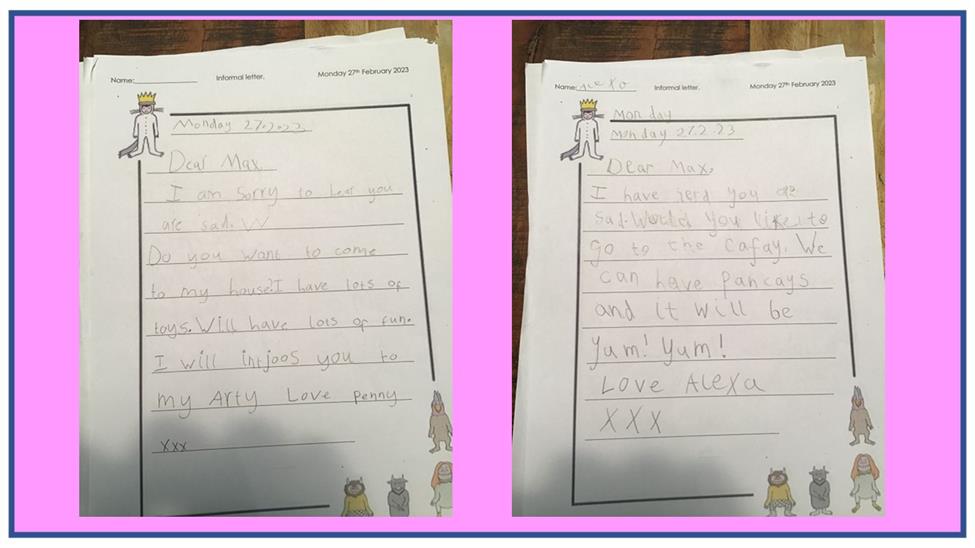 Name:
Informal letter.
Monday 27th February 2023
Monday 27.2.2023
Dear Max
I am sorry to hear you
are sad. W
Do you want to come
to my house? I have lots of
toys. Will have lots of fun.
I will intjoos you to
my Arty Love Penny
xxx
Name: Alexa
Informal letter.
Monday 27th February 2023
Monday
Monday 27.2.23
Dear Max,
I have jerd you are
sad. Would you like to
go to the cafay. We
can have pancays
and it will be
Yum! Yum!
Love Alexa
XXX